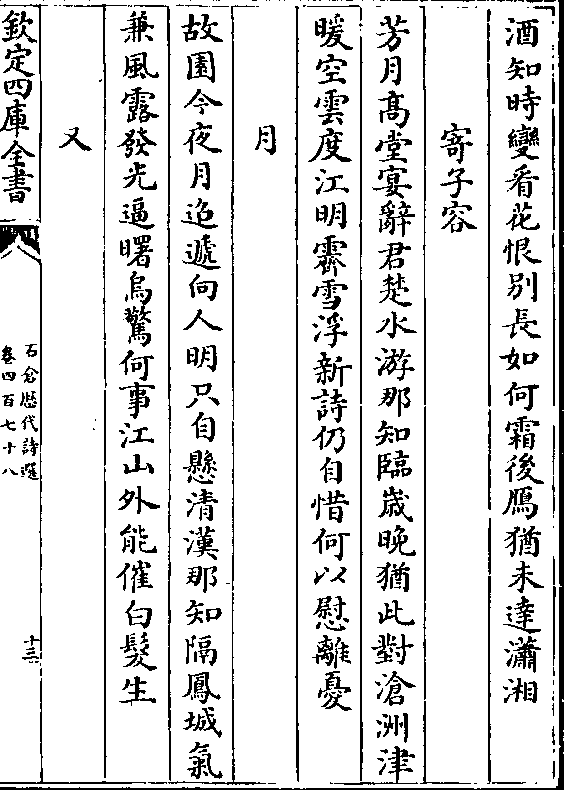 酒知時變看花恨别長如何霜後鴈猶未達瀟湘
寄子容
芳月髙堂宴辭君楚水游那知臨歳晩猶此對滄洲津
暖空雲度江明霽雪浮新詩仍自惜何以慰離憂
月
故園今夜月迢遞向人明只自懸清漢那知隔鳳城氣
兼風露發光逼曙烏驚何事江山外能催白髮生
又
欽定四庫全書
石倉歴代詩選
卷四百七十八
十三